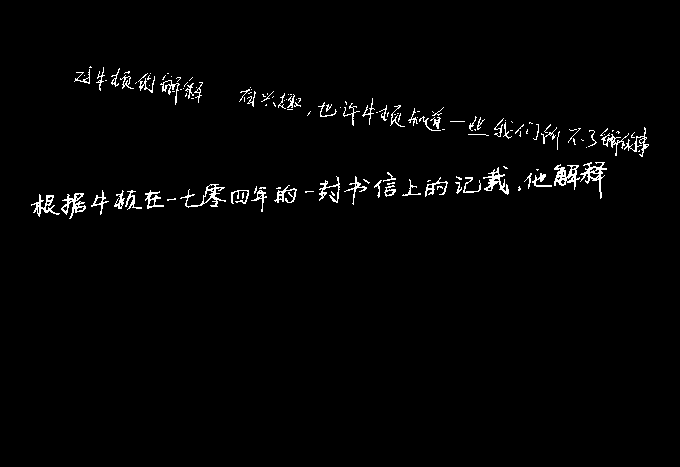 对牛顿的解释 有兴趣,也许牛顿知道一些我们所不了解的事
根据牛顿在一七零四年的一封书信上的记载,他解释